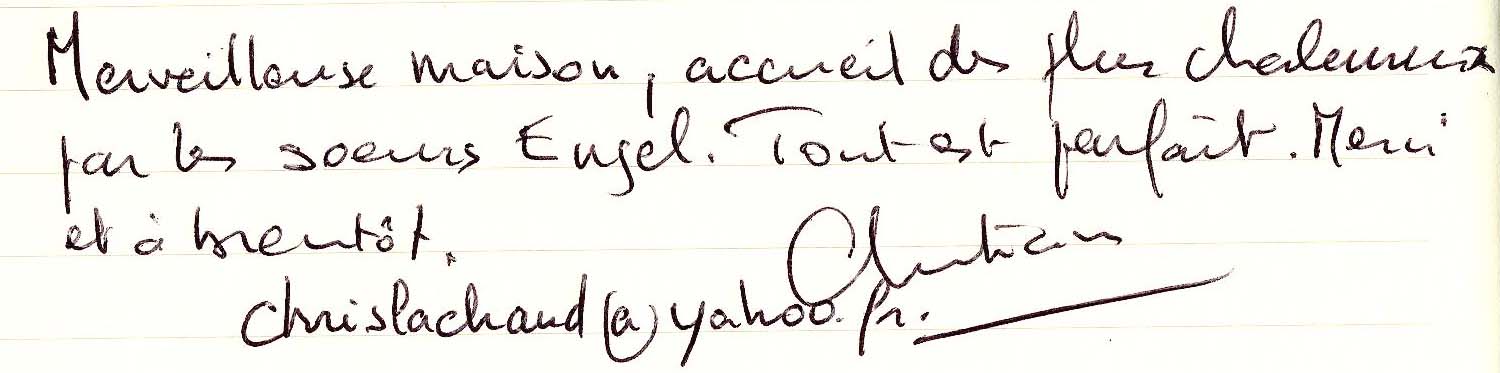 Merveilleuse maison, accueil des plus chaleureux
par les soeurs Engel. Tout est parfait. Merci
et à bientôt.
Christian
chrislachaud(a)yahoo.fr.